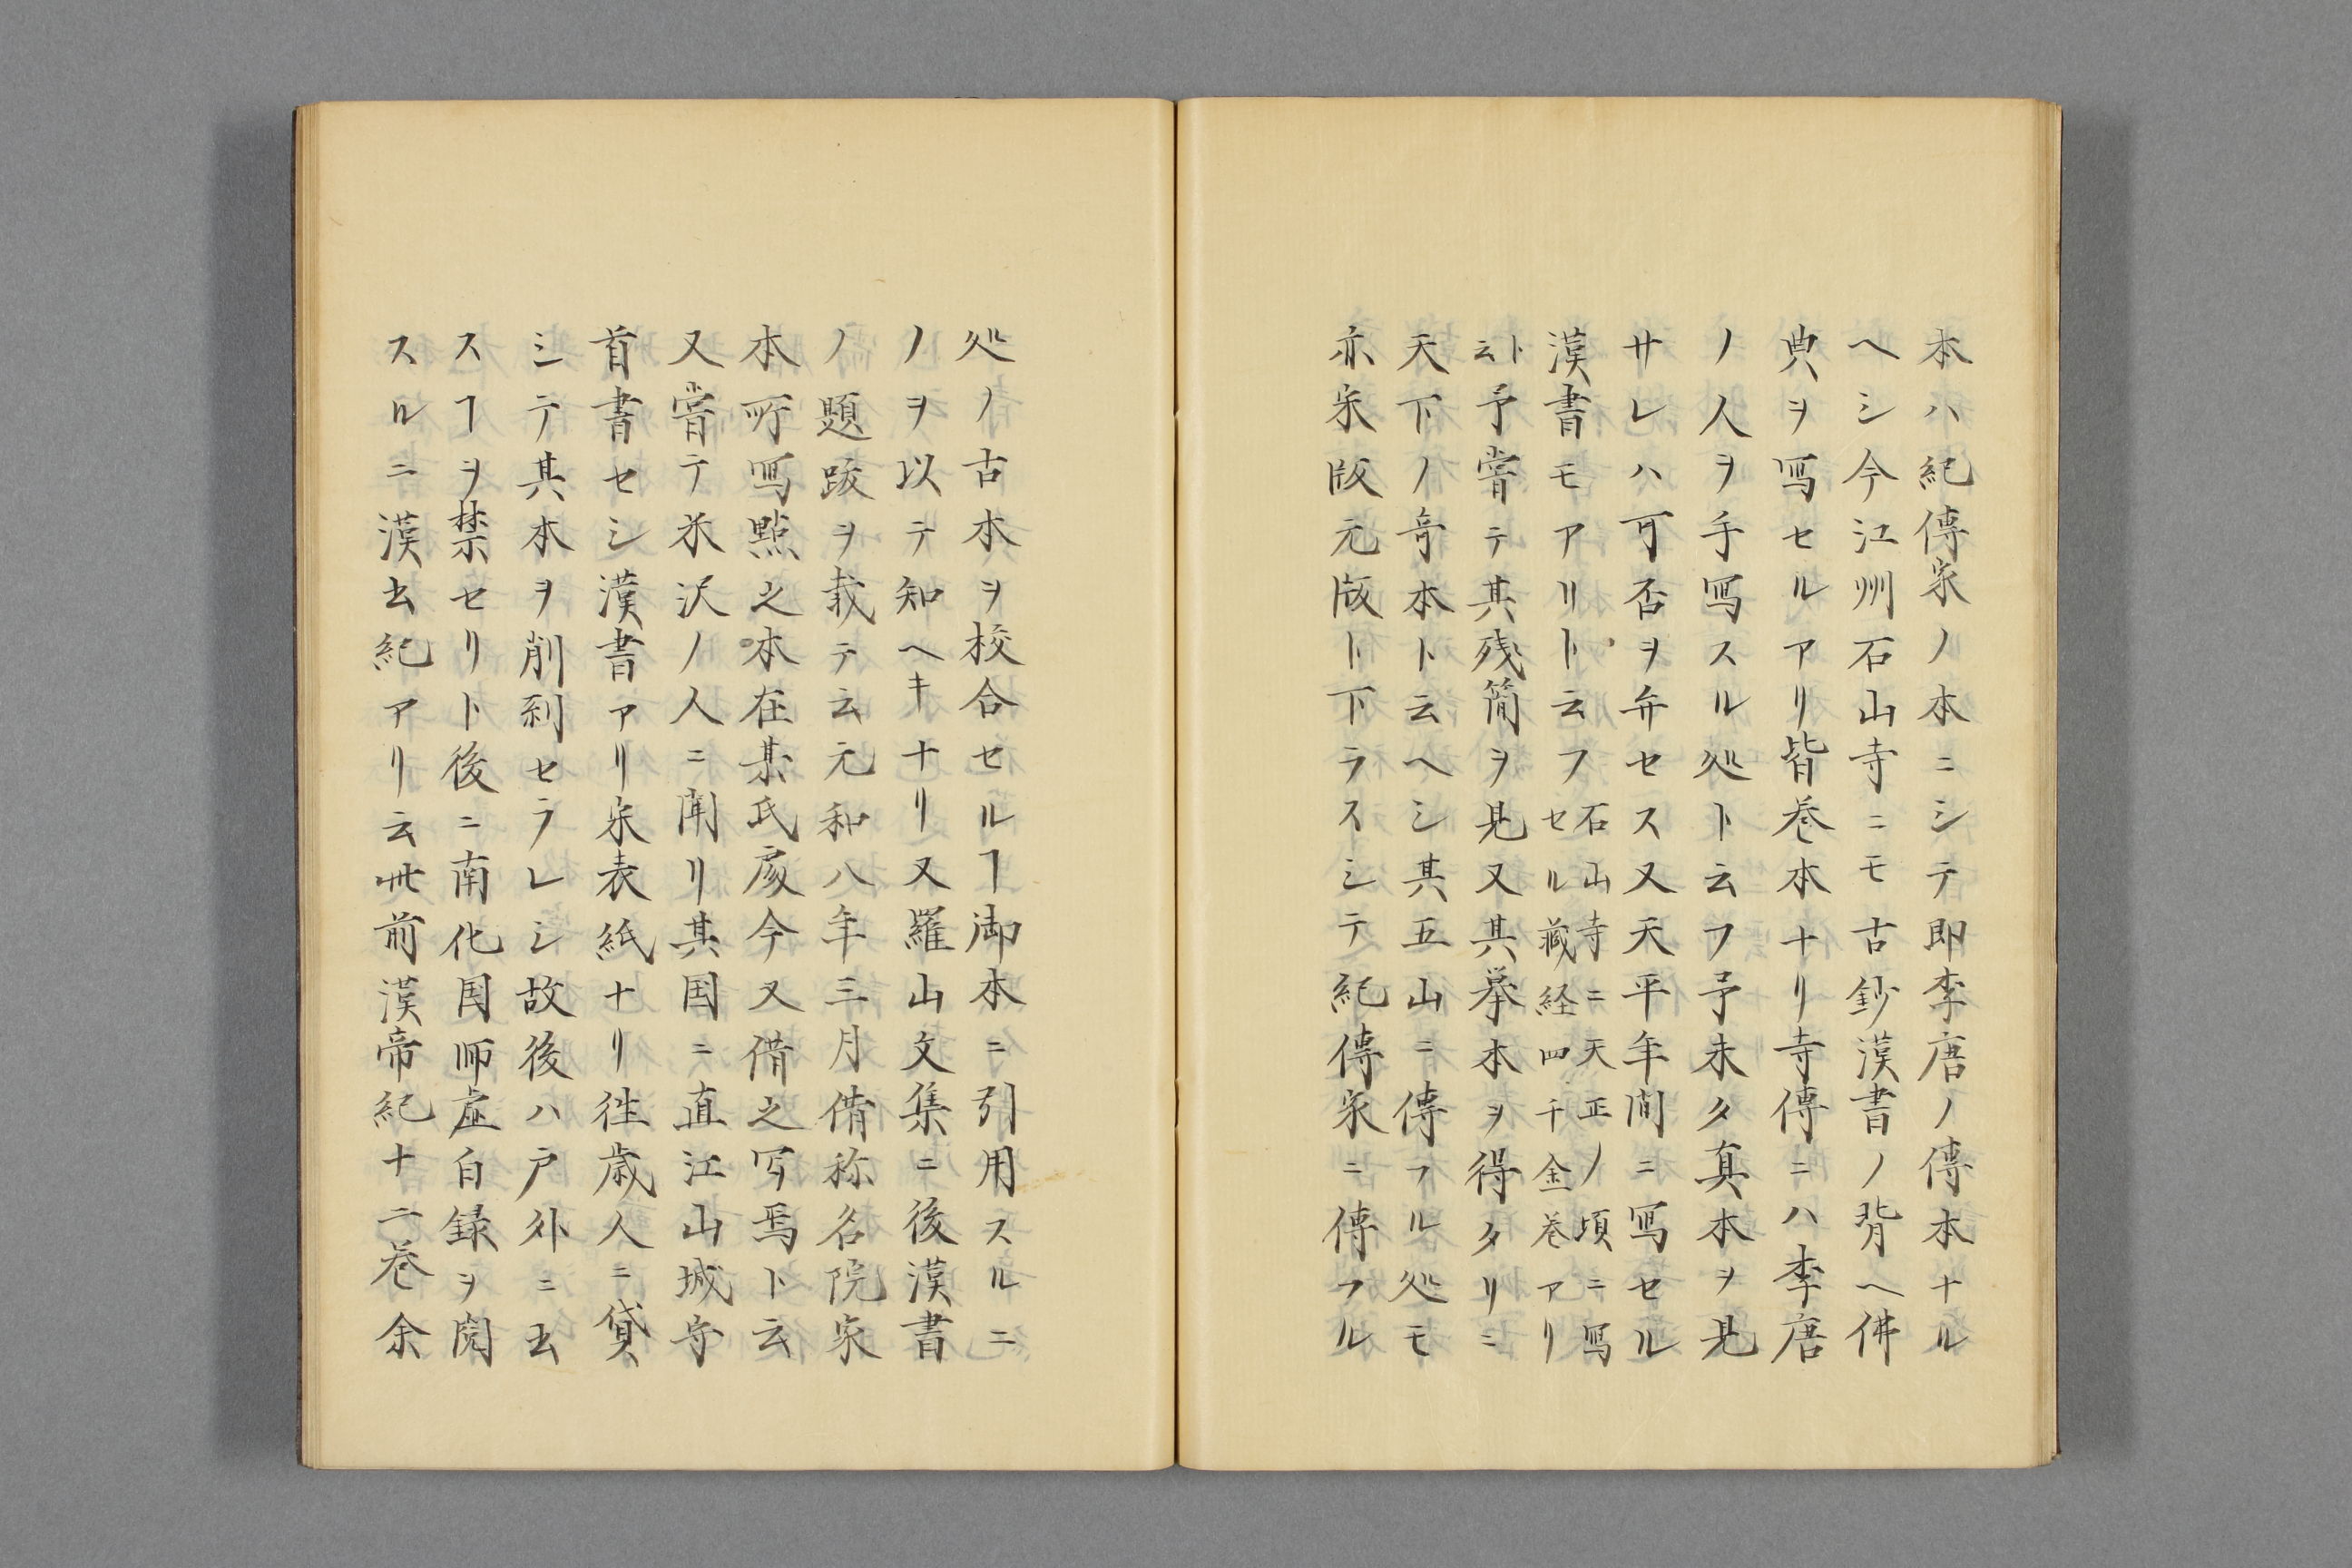 本ハ紀傳家ノ本ニシテ即李唐ノ傳本ナル
ヘシ今江州石山寺ニモ古鈔漢書ノ背ヘ佛
典ヲ写セルアリ皆巻本ナリ寺傳ニハ李唐
ノ人ヲ手写スル処ト云フ予未タ真本ヲ見
サレハ可否ヲ弁セス又天平年間ニ写セル
漢書モアリト云フ石山寺ニ天正ノ頃ニ写セル藏経四千金巻アリ
ト云予甞テ其残簡ヲ見又其摹本ヲ得タリ三
天下ノ竒本ト云ヘシ其五山ニ傳フル処モ
亦宋版元版ト下ラスシテ紀傳家ニ傳フル
処ノ古本ヲ校合セルヿ御本ニ引用スルニ
ノヲ以テ知ヘキナリ又羅山文集ニ後漢書
ノ題跋ヲ載テ云元和八年三月借称名院家
本所写點之本在某氏家今又借之写焉ト云
又甞テ米沢ノ人ニ聞リ其国ニ直江山城守
首書セシ漢書アリ宋表紙ナリ徃歳人ニ貸
シテ其本ヲ削剥セラレシ故後ハ戸外ニ出
スヿヲ禁セリト後ニ南化国師虚白録ヲ閲
スルニ漢書紀アリ云此前漢帝紀十二巻余